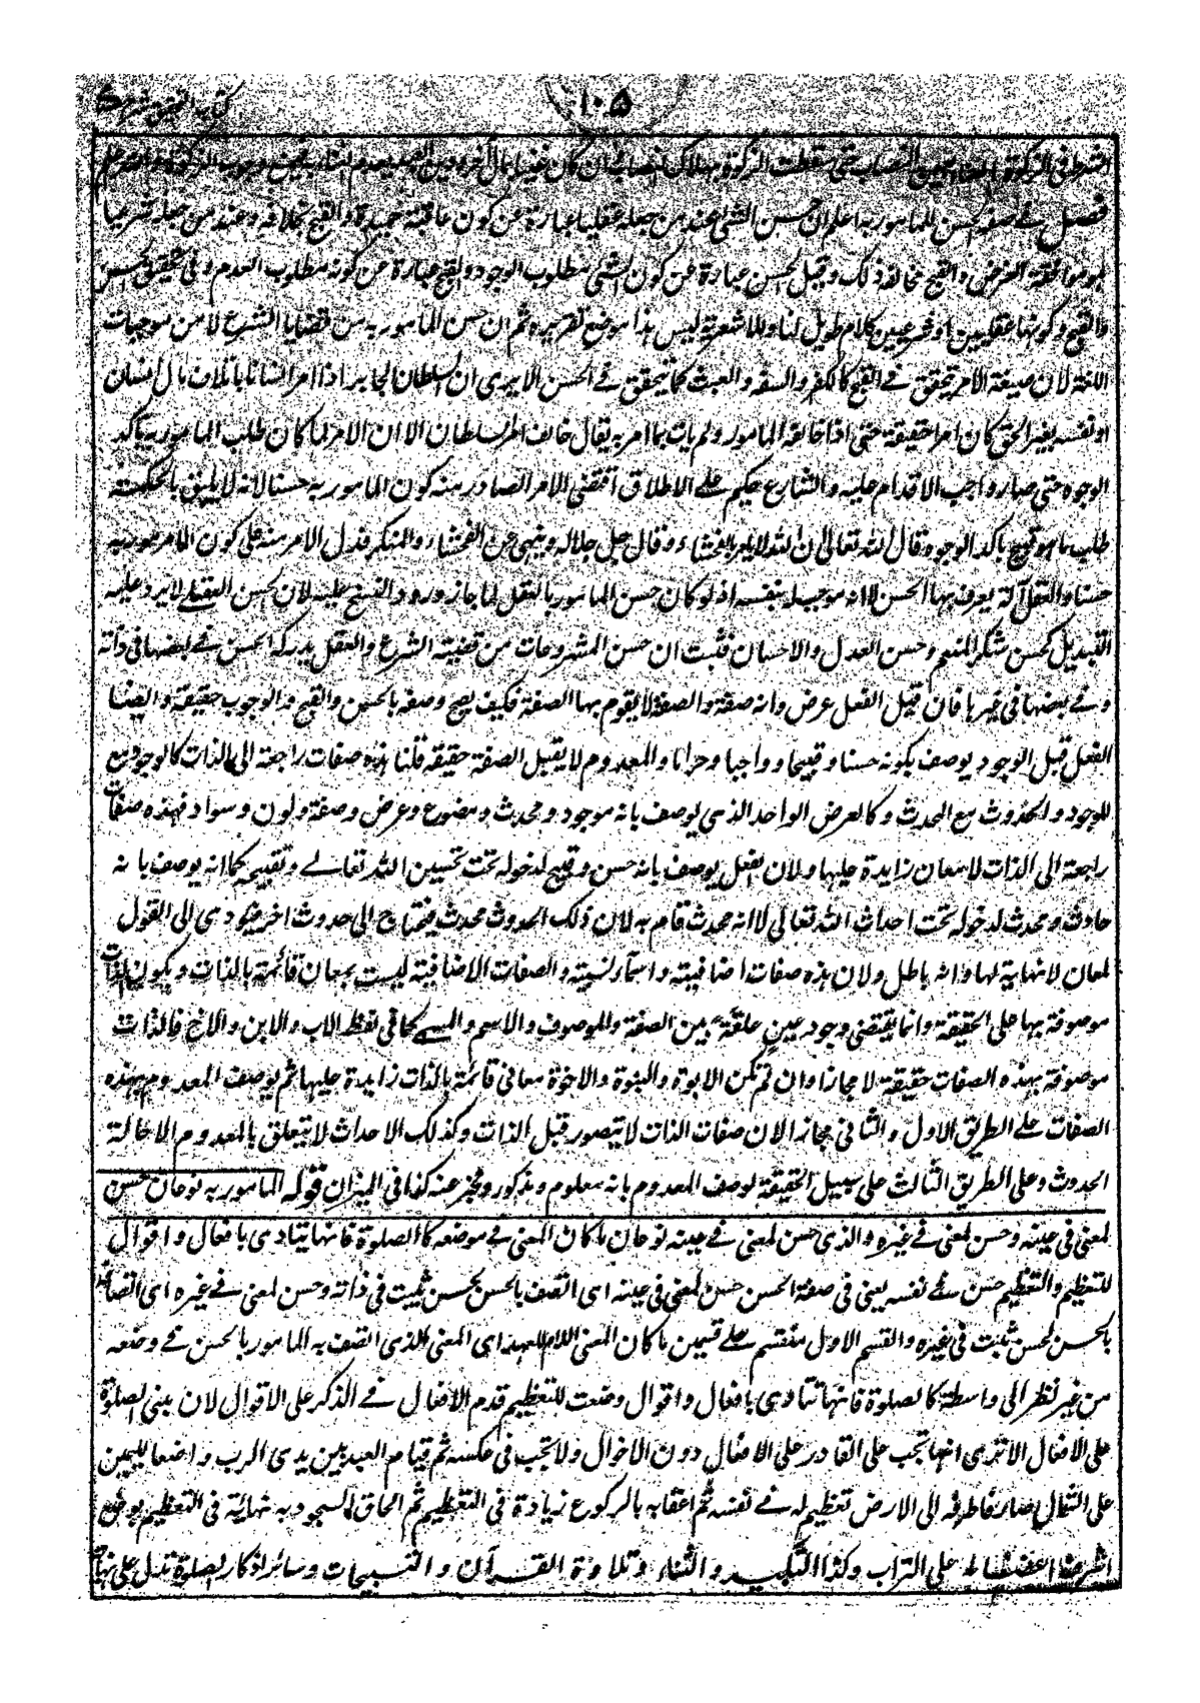 ١٠٥
فصل في صفة الحسن للمامور به اعلم ان حسن الشئ عند من جعله عقليا عبارة عن كون عاقبته حميدة والقبح بخلافه وعند من جعله شرعيا
هو موافقة الغرض والقبح مخالفة ذلك وقيل الحسن عبارة عن كون الشئ مطلوب الوجود والقبح عبارة عن كونه مطلوب العدم وفي تحقيق الحسن
والقبح وكونهما عقليين او شرعيين كلام طويل لنا وللاشعرية ليس هذا موضع تقريره ثم ان حسن المامور به من قضايا الشرع لا من موجبات
اللغة لان صيغة الامر تتحقق في القبح كالكفر والسفه والعبث كما يتحقق في الحسن الا يرى ان السلطان الجاير اذا امر انسانا باتلاف مال انسان
او نفسه بغير الحق كان امرا حقيقة حتى اذا خالفه المامور ولم يات بما امر به يقال خالف امر السلطان الا ان الامر لما كان طلب المامور به باكد
الوجوه حتى صار واجب الاقدام عليه والشارع حكيم على الاطلاق اقتضى الامر الصادر منه كون المامور به حسنا لانه لا يليق بالحكمة
طلب ما هو قبيح باكد الوجوه وقال الله تعالى ان الله لا يامر بالفحشاء وقال جل جلاله وينهى عن الفحشاء والمنكر فدل الامر منه على كون المامور به
حسنا والعقل آلة يعرف بها الحسن لا انه موجب له بنفسه اذ لو كان حسن المامور بالعقل لما جاز ورود النسخ عليه لان الحسن العقلي لا يرد عليه
التبديل كحسن شكر المنعم وحسن العدل والاحسان فثبت ان حسن المشروعات من قضية الشرع والعقل يدركه الحسن في بعضها في ذاته
وفي بعضها في غيرها فان قيل الفعل عرض وانه صفة والصفة لا يقوم بها الصفة فكيف يصح وصفه بالحسن والقبح والوجوب حقيقة وايضا
الفعل قبل الوجود يوصف بكونه حسنا وقبيحا وواجبا وحراما والمعدوم لا يقبل الصفة حقيقة قلنا هذه صفات راجعة الى الذات كالوجود مع
الموجود والحدوث مع المحدث وكالعرض الواحد الذي يوصف بانه موجود ومحدث ومصنوع وعرض وصفة ولون وسواد فهذه صفات
راجعة الى الذات لا معان زايدة عليها ولان الفعل يوصف بانه حسن وقبيح لدخوله تحت تحسين الله تعالى وتقبيحه كما انه يوصف بانه
حادث ومحدث لدخوله تحت احداث الله تعالى لا انه محدث قام به لان ذلك الحدوث محدث فيحتاج الى حدوث اخر فيؤدي الى القول
لمعان لا نهاية لها وانه باطل ولان هذه صفات اضافية واسماء نسبية والصفات الاضافية ليست بمعان قائمة بالذات ويكون الذات
موصوفة بها على الحقيقة وانما يقتضي وجود عين علقة بين الصفة والموصوف والاسم والمسمى كما في لفظ الاب والابن والاخ فالذات
موصوفة بهذه الصفات حقيقة لا مجازا وان لم تكن الابوة والبنوة والاخوة معاني قائمة بالذات زايدة عليها ثم يوصف المعدوم بهذه
الصفات على الطريق الاول والثاني مجازا لان صفات الذات لا يتصور قبل الذات وكذلك الاحداث لا يتعلق بالمعدوم الا حالة
الحدوث وعلى الطريق الثالث على سبيل الحقيقة لوصف المعدوم بانه معلوم ومذكور ومخبر عنه كذا في الميزان قوله المامور به نوعان حسن
لمعنى في عينه وحسن لمعنى في غيره والذي حسن لمعنى في عينه نوعان ما كان المعنى في موضعه كالصلوة فانها تتادى بافعال واقوال
للتعظيم والتعظيم حسن في نفسه يعني في صفة الحسن حسن لمعنى في عينه اى اتصف بالحسن لحسن ثبت في ذاته وحسن لمعنى في غيره اى اتصف
بالحسن لحسن ثبت في غيره والقسم الاول منقسم على قسمين ما كان المعنى اللام للعهد اى المعنى الذي اتصف به المامور بالحسن في وضعه
من غير نظر الى واسطة كالصلوة فانها تتادى بافعال واقوال وضعت للتعظيم قدم الافعال في الذكر على الاقوال لان مبنى الصلوة
على الافعال الا ترى انها تجب على القادر على الافعال دون الاقوال ولا تجب في عكسه ثم قيام العبد بين يدى الرب واضعا لليمين
على الشمال صارفا طرفه الى الارض تعظيم له في نفسه ثم اعقابه بالركوع زيادة في التعظيم ثم الحاق السجود به نهاية في التعظيم بوضع
اشرف اعضائه على التراب وكذا التكبير والثناء وتلاوة القرآن والتسبيحات وسائر اذكار الصلوة تدل على